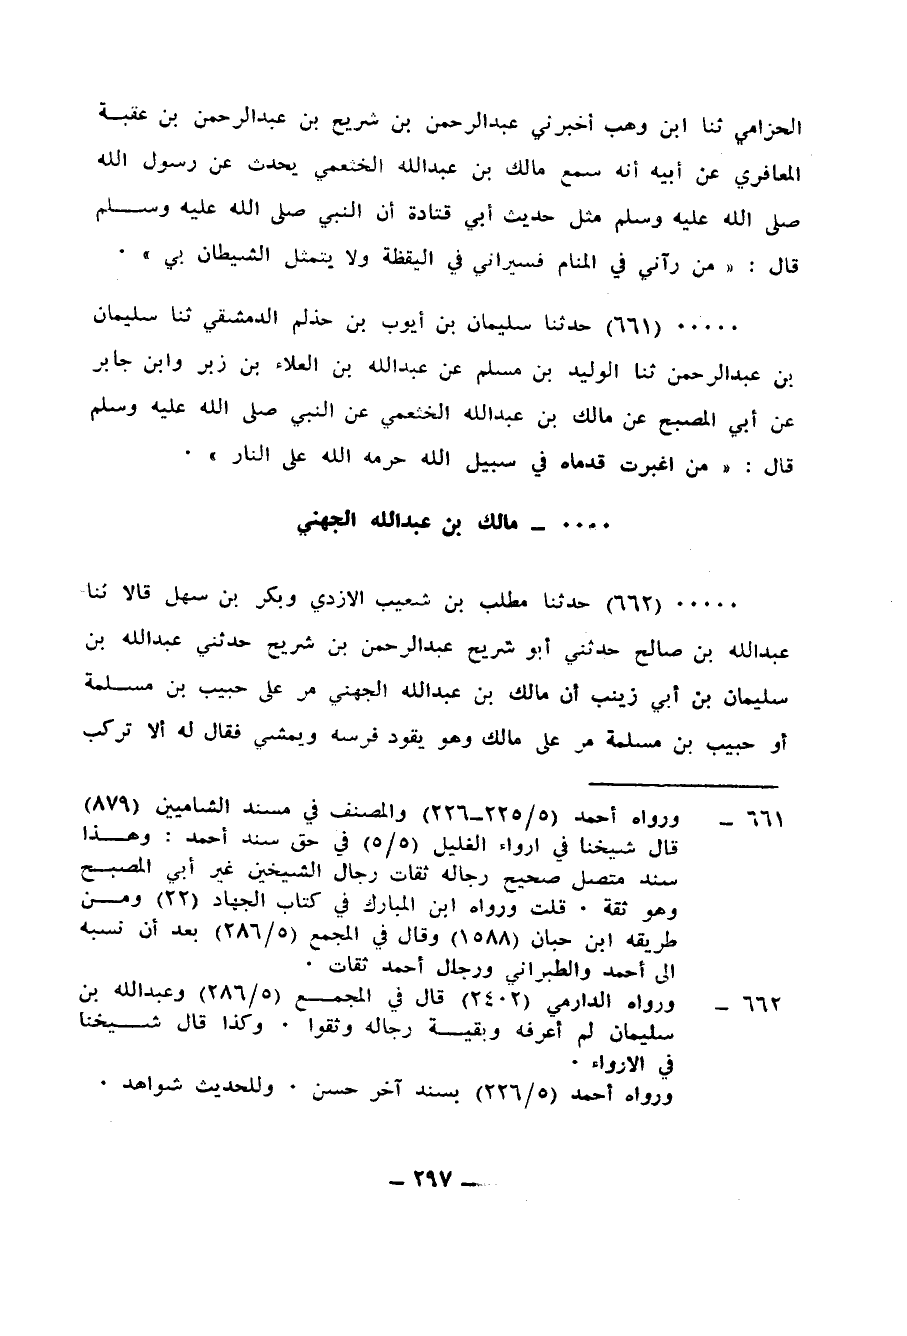 الحزامي ثنا ابن وهب أخبرني عبدالرحمن بن شريح بن عبدالرحمن بن عقبة
المعافري عن أبيه أنه سمع مالك بن عبدالله الخثعمي يحدث عن رسول الله
صلى الله عليه وسلم مثل حديث أبي قتادة أن النبي صلى الله عليه وسلم
قال : « من رآني في المنام فسيراني في اليقظة ولا يتمثل الشيطان بي » ٠
٠٠٠٠٠ (٦٦١) حدثنا سليمان بن أيوب بن حذلم الدمشقي ثنا سليمان
بن عبدالرحمن ثنا الوليد بن مسلم عن عبدالله بن العلاء بن زبر وابن جابر
عن أبي المصبح عن مالك بن عبدالله الخثعمي عن النبي صلى الله عليه وسلم
قال : « من اغبرت قدماه في سبيل الله حرمه الله على النار » ٠
٠٠٠٠ ـ مالك بن عبدالله الجهني
٠٠٠٠٠ (٦٦٢) حدثنا مطلب بن شعيب الازدي وبكر بن سهل قالا ثنا
عبدالله بن صالح حدثني أبو شريح عبدالرحمن بن شريح حدثني عبدالله بن
سليمان بن أبي زينب أن مالك بن عبدالله الجهني مر على حبيب بن مسلمة
أو حبيب بن مسلمة مر على مالك وهو يقود فرسه ويمشي فقال له ألا تركب
٦٦١ ـ ورواه أحمد (٥/٢٢٥ـ٢٢٦) والمصنف في مسند الشاميين (٨٧٩)
قال شيخنا في ارواء الغليل (٥/٥) في حق سند أحمد : وهذا
سند متصل صحيح رجاله ثقات رجال الشيخين غير أبي المصبح
وهو ثقة ٠ قلت ورواه ابن المبارك في كتاب الجهاد (٢٢) ومن
طريقه ابن حبان (١٥٨٨) وقال في المجمع (٥/٢٨٦) بعد أن نسبه
الى أحمد والطبراني ورجال أحمد ثقات ٠
٦٦٢ ـ ورواه الدارمي (٢٤٠٢) قال في المجمع (٥/٢٨٦) وعبدالله بن
سليمان لم أعرفه وبقية رجاله وثقوا ٠ وكذا قال شيخنا
في الارواء ٠
ورواه أحمد (٥/٢٢٦) بسند آخر حسن ٠ وللحديث شواهد ٠
ـ ٢٩٧ ـ